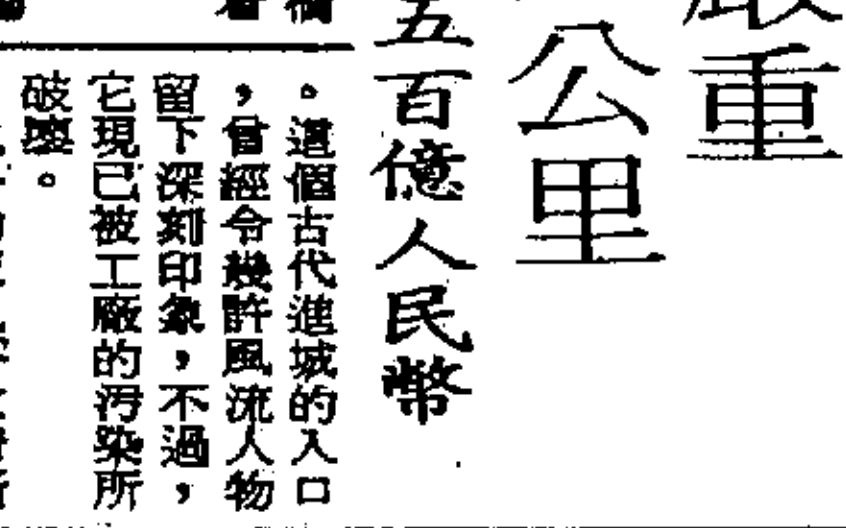 重
公里
五百億人民幣
。這個古代進城的入口
，曾經令幾許風流人物
留下深刻印象，不過，
它現已被工廠的污染所
破壞。